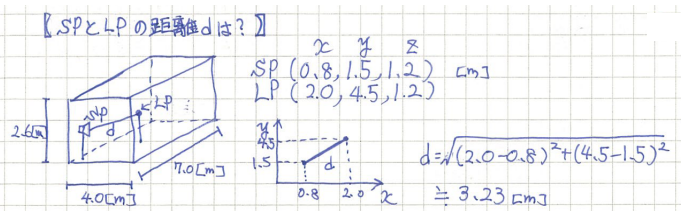 【SPとLPの距離dは？】
x y z
SP (0.8, 1.5, 1.2) [m]
LP (2.0, 4.5, 1.2)
SP
LP
d
2.6[m]
7.0[m]
4.0[m]
y
4.5
1.5
d
0.8 2.0 x
d=√(2.0-0.8)²+(4.5-1.5)²
≒ 3.23 [m]